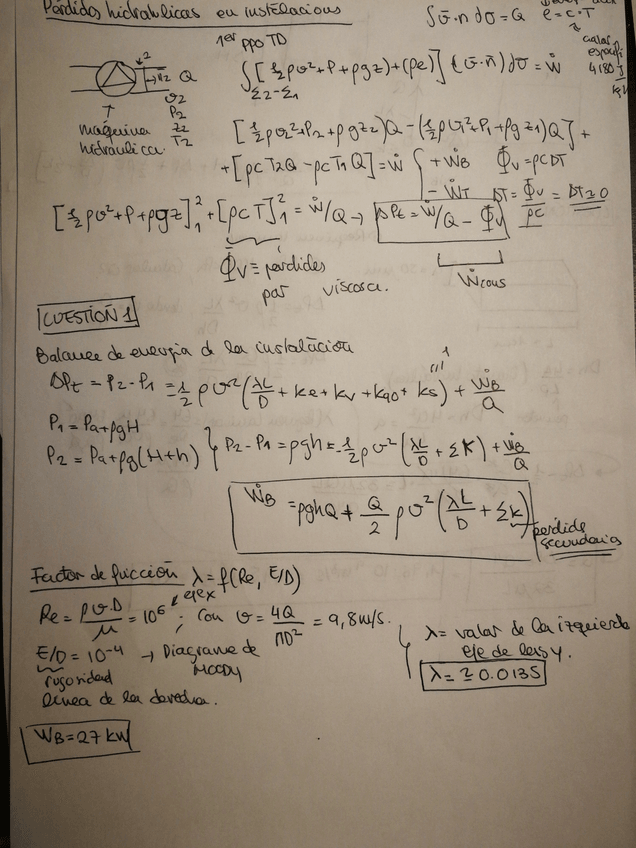 Pérdidas hidraúlicas en instalacions
∫ū·n dσ = Q   e = c·T
calor
4180 J
1er ppo TD
∫Σ2-Σ1 [½ρv²+P+ρgz)+(ρe)] (v̄·n̄)dσ = Ẇ
2
Q
v2
P2
z2
T2
máquina
hidráulica
[½ρv2²+P2+ρgz2)Q - (½ρv1²+P1+ρgz1)Q] +
+[ρcT2Q - ρcT1Q] = Ẇ { +ẆB   Φv = ρcDT
- ẆT   DT = Φv/ρc = DT≥0
[½ρv²+P+ρgz]₁² + [ρcT]₁² = Ẇ/Q → ΔPt = Ẇ/Q - Φv
Φv = pérdidas
por viscosa.
Ẇcons
CUESTIÓN 1
Balance de energía de la instalación
ΔPt = P2-P1 = -½ρv²(λL/D + ke + kv + k90 + ks) + ẆB/Q
1
P1 = Pa+ρgH
P2 = Pa+ρg(H+h)
P2-P1 = ρgh = -½ρv²(λL/D + ΣK) + ẆB/Q
ẆB = ρghQ + Q/2 ρv²(λL/D + Σk)
pérdida
secundarias
Factor de fricción λ = f(Re, E/D)
eje x
Re = ρvD/μ = 10⁶ ; con v = 4Q/ΠD² = 9,8 m/s.
E/D = 10⁻⁴ → Diagrama de
MOODY
rugosidad
línea de la derecha.
λ = valor de la izquierda
eje de las y.
λ = ≃ 0.0135
WB = 27 kW